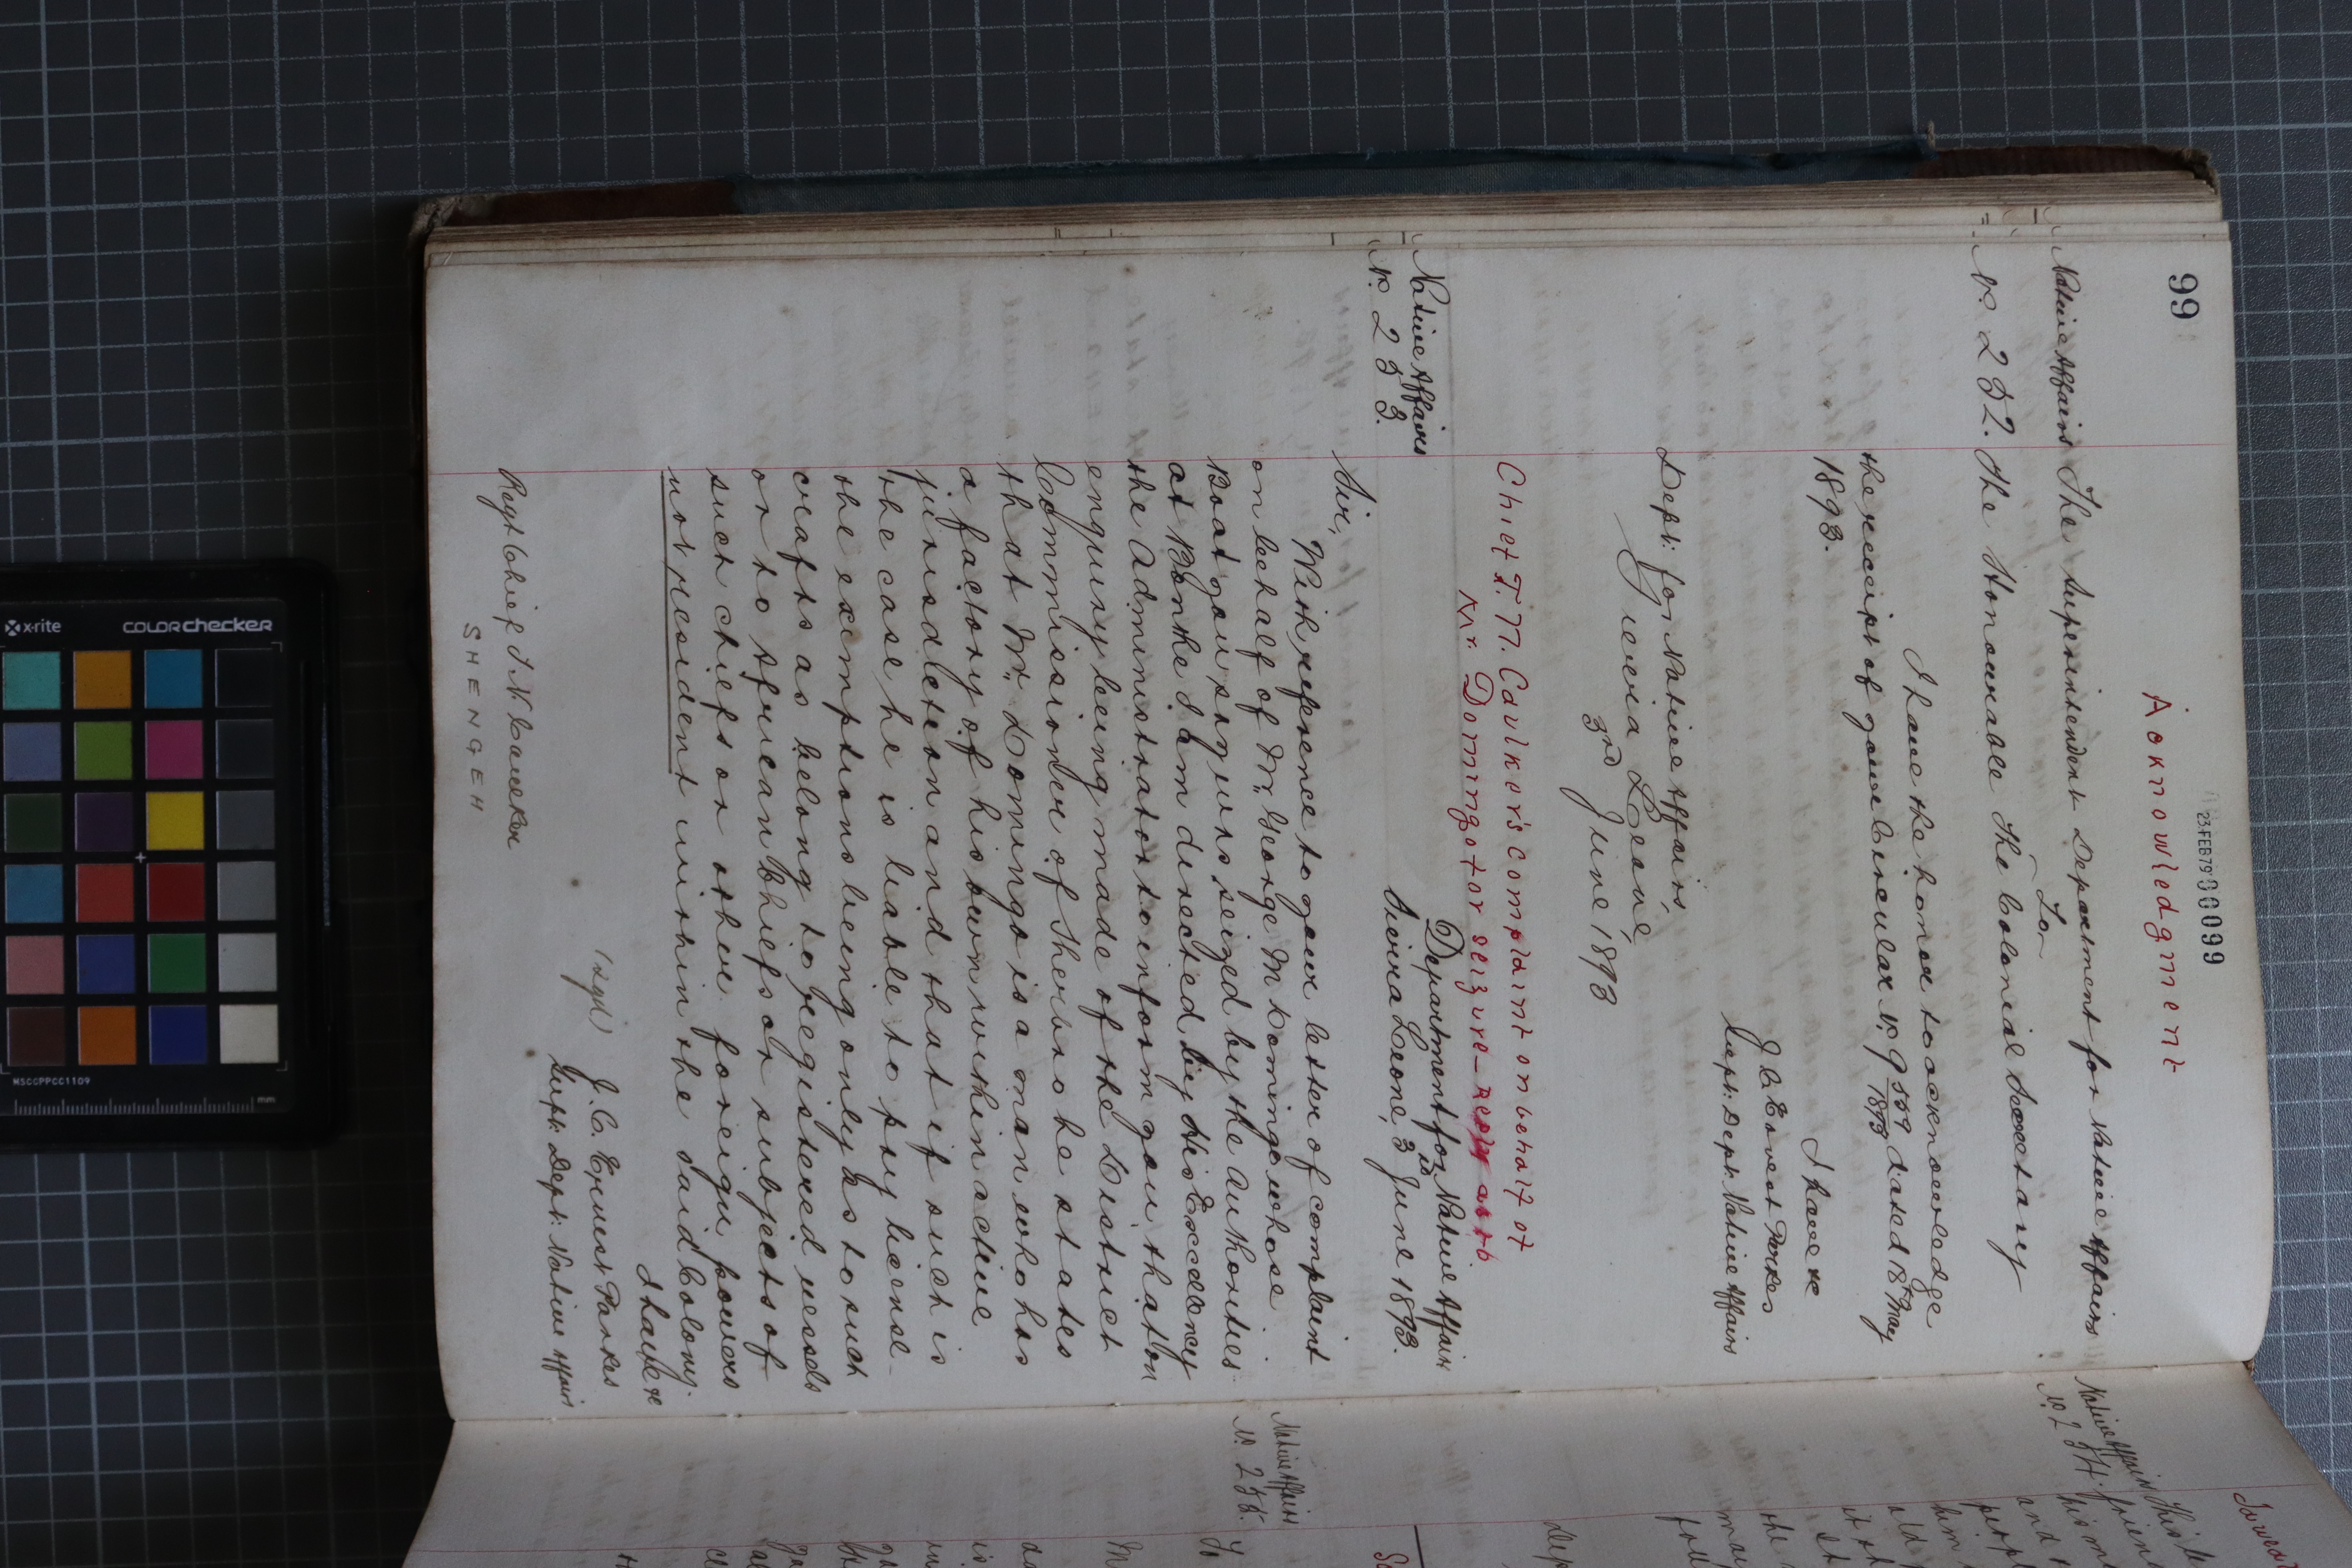 99
23 FEB 79 00099
Acknowledgment
Native Affairs The Superintendent Department for Native Affairs
For
No. 252. The Honourable The Colonial Secretary
I have the honour to acknowledge
the receipt of your Circular No. 9 509/1893 dated 18th May
1893.
I have &c
J C Ernest Parkes
Supt: Dept: Native Affairs
Dept: for Native Affairs,
Sierra Leone,
3rd June 1893
Chief T. N. Caulker's complaint on behalf of
Mr. Domingo for seizure - Reply as to
Native Affairs
No. 253.
Department for Native Affairs
Sierra Leone, 3rd June 1893.
Sir,
With reference to your letter of complaint
on behalf of Mr. George M Domingo whose
Boat you say was seized by the Authorities
at Bonthe I am directed by His Excellency
the Administrator to inform you that on
enquiry being made of the District
Commissioner of Sherbro he states
that Mr. Domingo is a man who has
a factory of his own within active
jurisdiction and that if such is
the case he is liable to pay license
the exemptions being only as to such
crafts as belong to registered vessels
or to African Chiefs or subjects of
such chiefs or other foreign powers
not resident within the said Colony.
I have &c
(sgd) J. C. Ernest Parkes
Supt: Dept: Native Affairs
Regt Chief T. N. Caulker
SHENGEH
Native Affairs
No. 254.
Native Affairs
No. 255.
x-rite
colorchecker
MSCCPPCC1109
mm